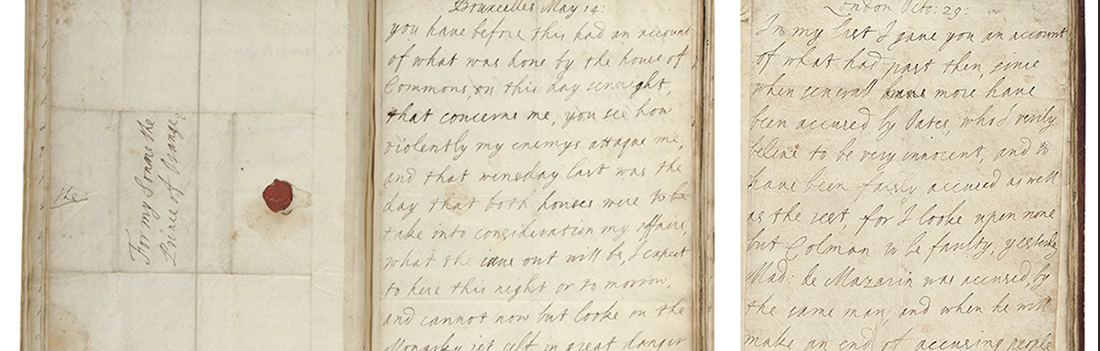 For my Sonne the
Prince of Orange
Bruxelles May 14:
you have before this had an account
of what was done by the house of
Commons, on this day senight,
that concerns me, you see how
violently my enemys attaque me,
and that wensday last was the
day that both houses were to be
take into consideration my affaire,
what the out will be, I expect
to here this night or to morrow,
and cannot now but looke on the
Monarky it self in great danger
London Octo: 29:
In my last I gave you an account
of what had past then, since
when severall have more have
been accused by Oates, who I verily
beleive to be very innocent, and to
have been falsly accused as well
as the rest, for I looke upon none
but Colman to be faulty, yesterday
Mad: de Mazarin was accused, by
the same man, and when he will
make an end of accusing people